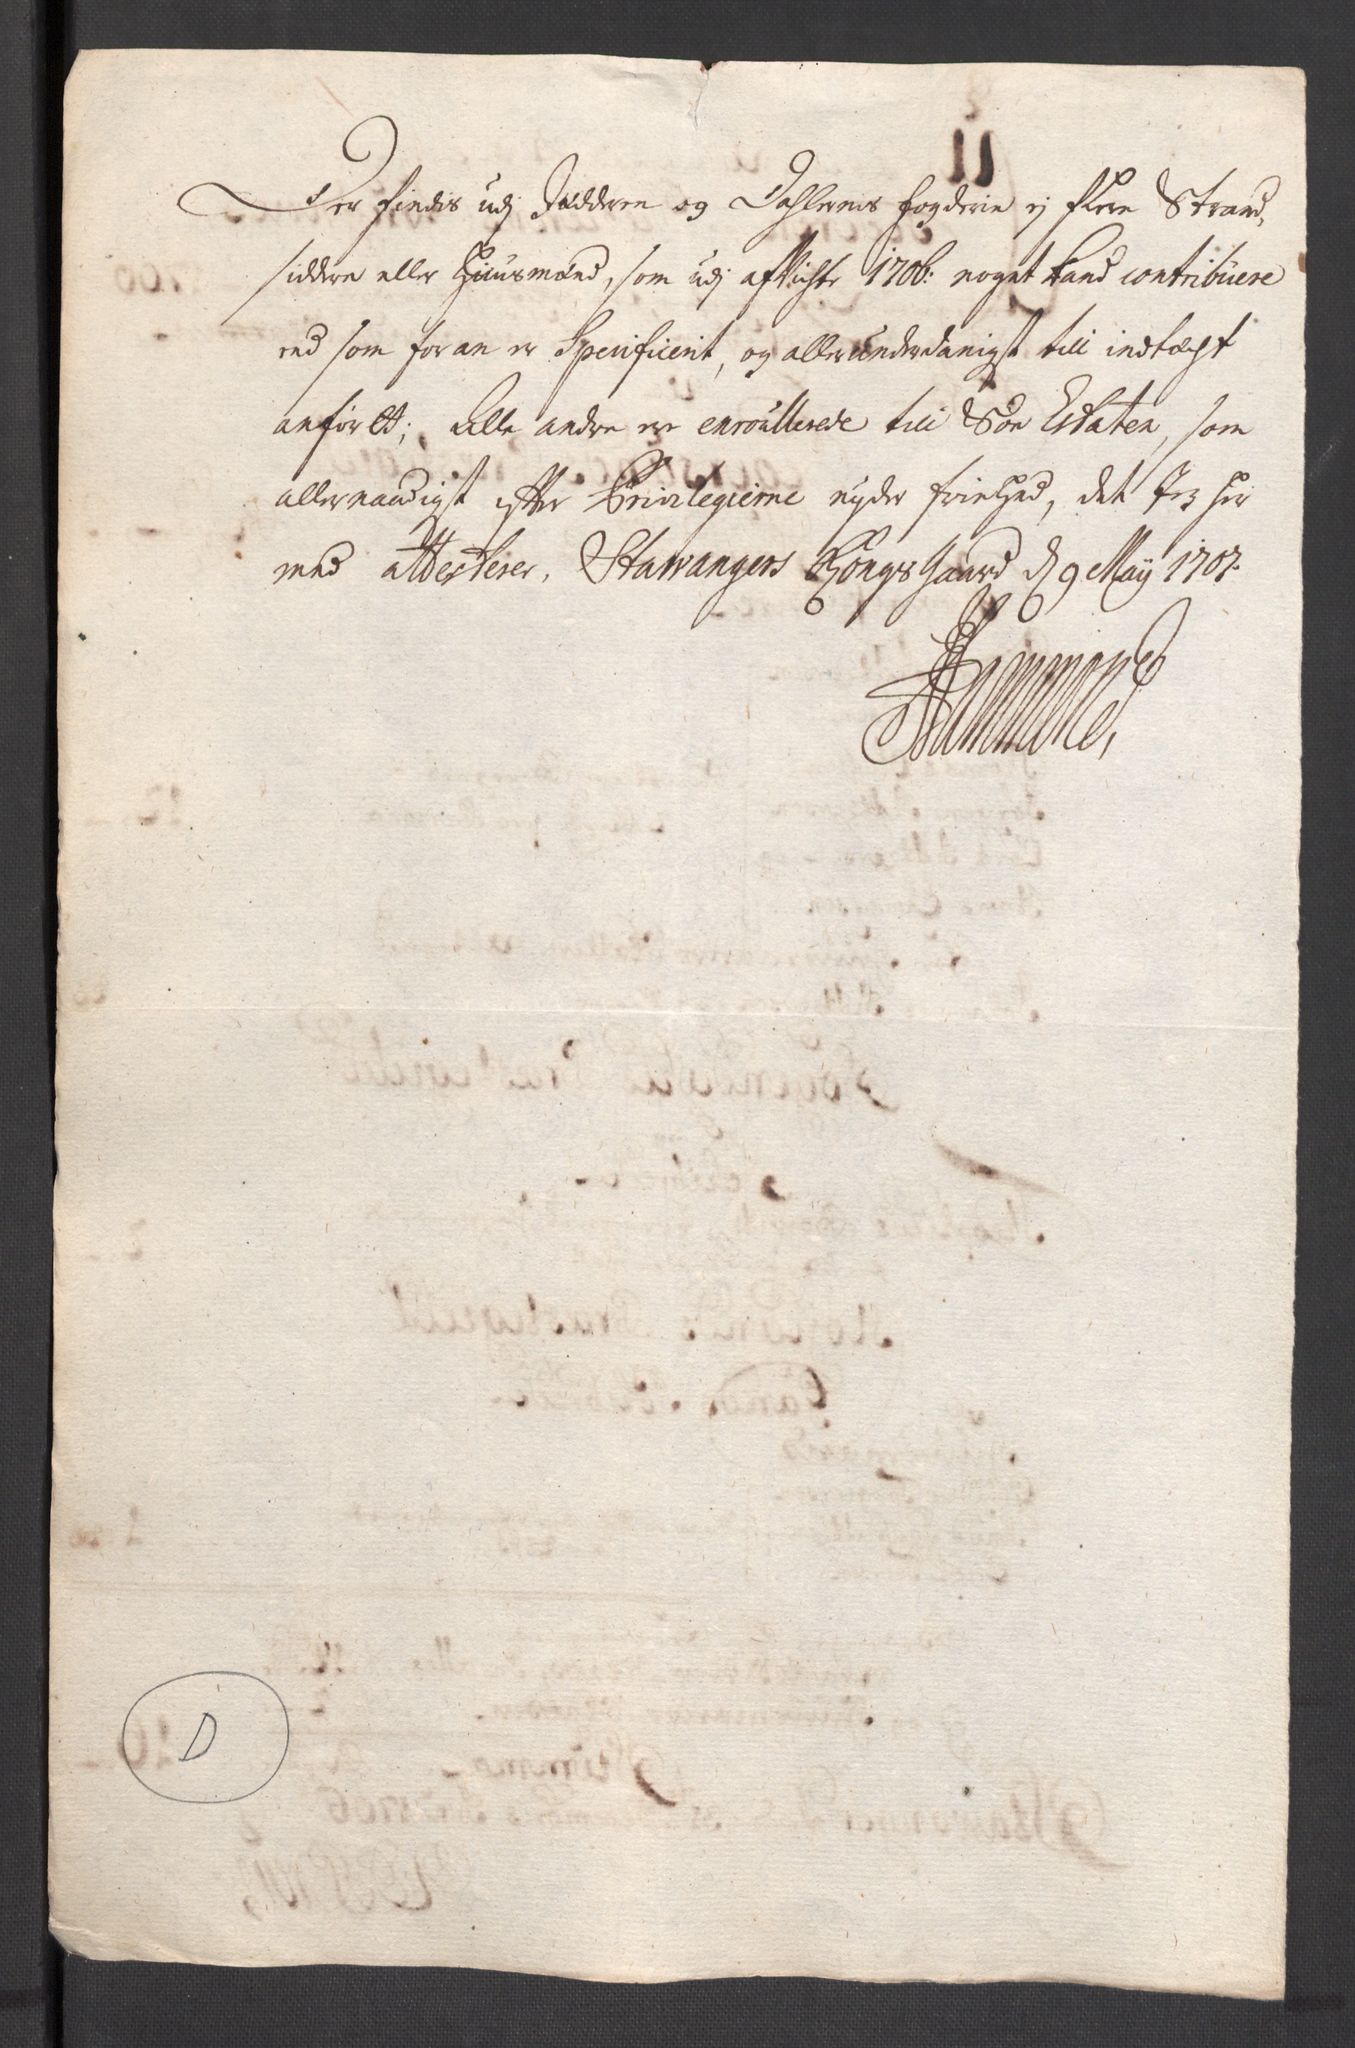 Der findis udj Jædderen og Dahlernes fogderie ej flere Strand-
siddere eller Huusmænd, som udj afvichte 1706: noget kand contribuere
end som foran er Specificerit, og allerunderdanigst till indtægt
anført; Alle andre ere enroullerede till Søe Estaten, som
allernaadigst efter Privilegierne nyder friehed, det Jeg her
med attesterer, Stavangers Kongs Gaard d 9 Maÿ 1707.
D